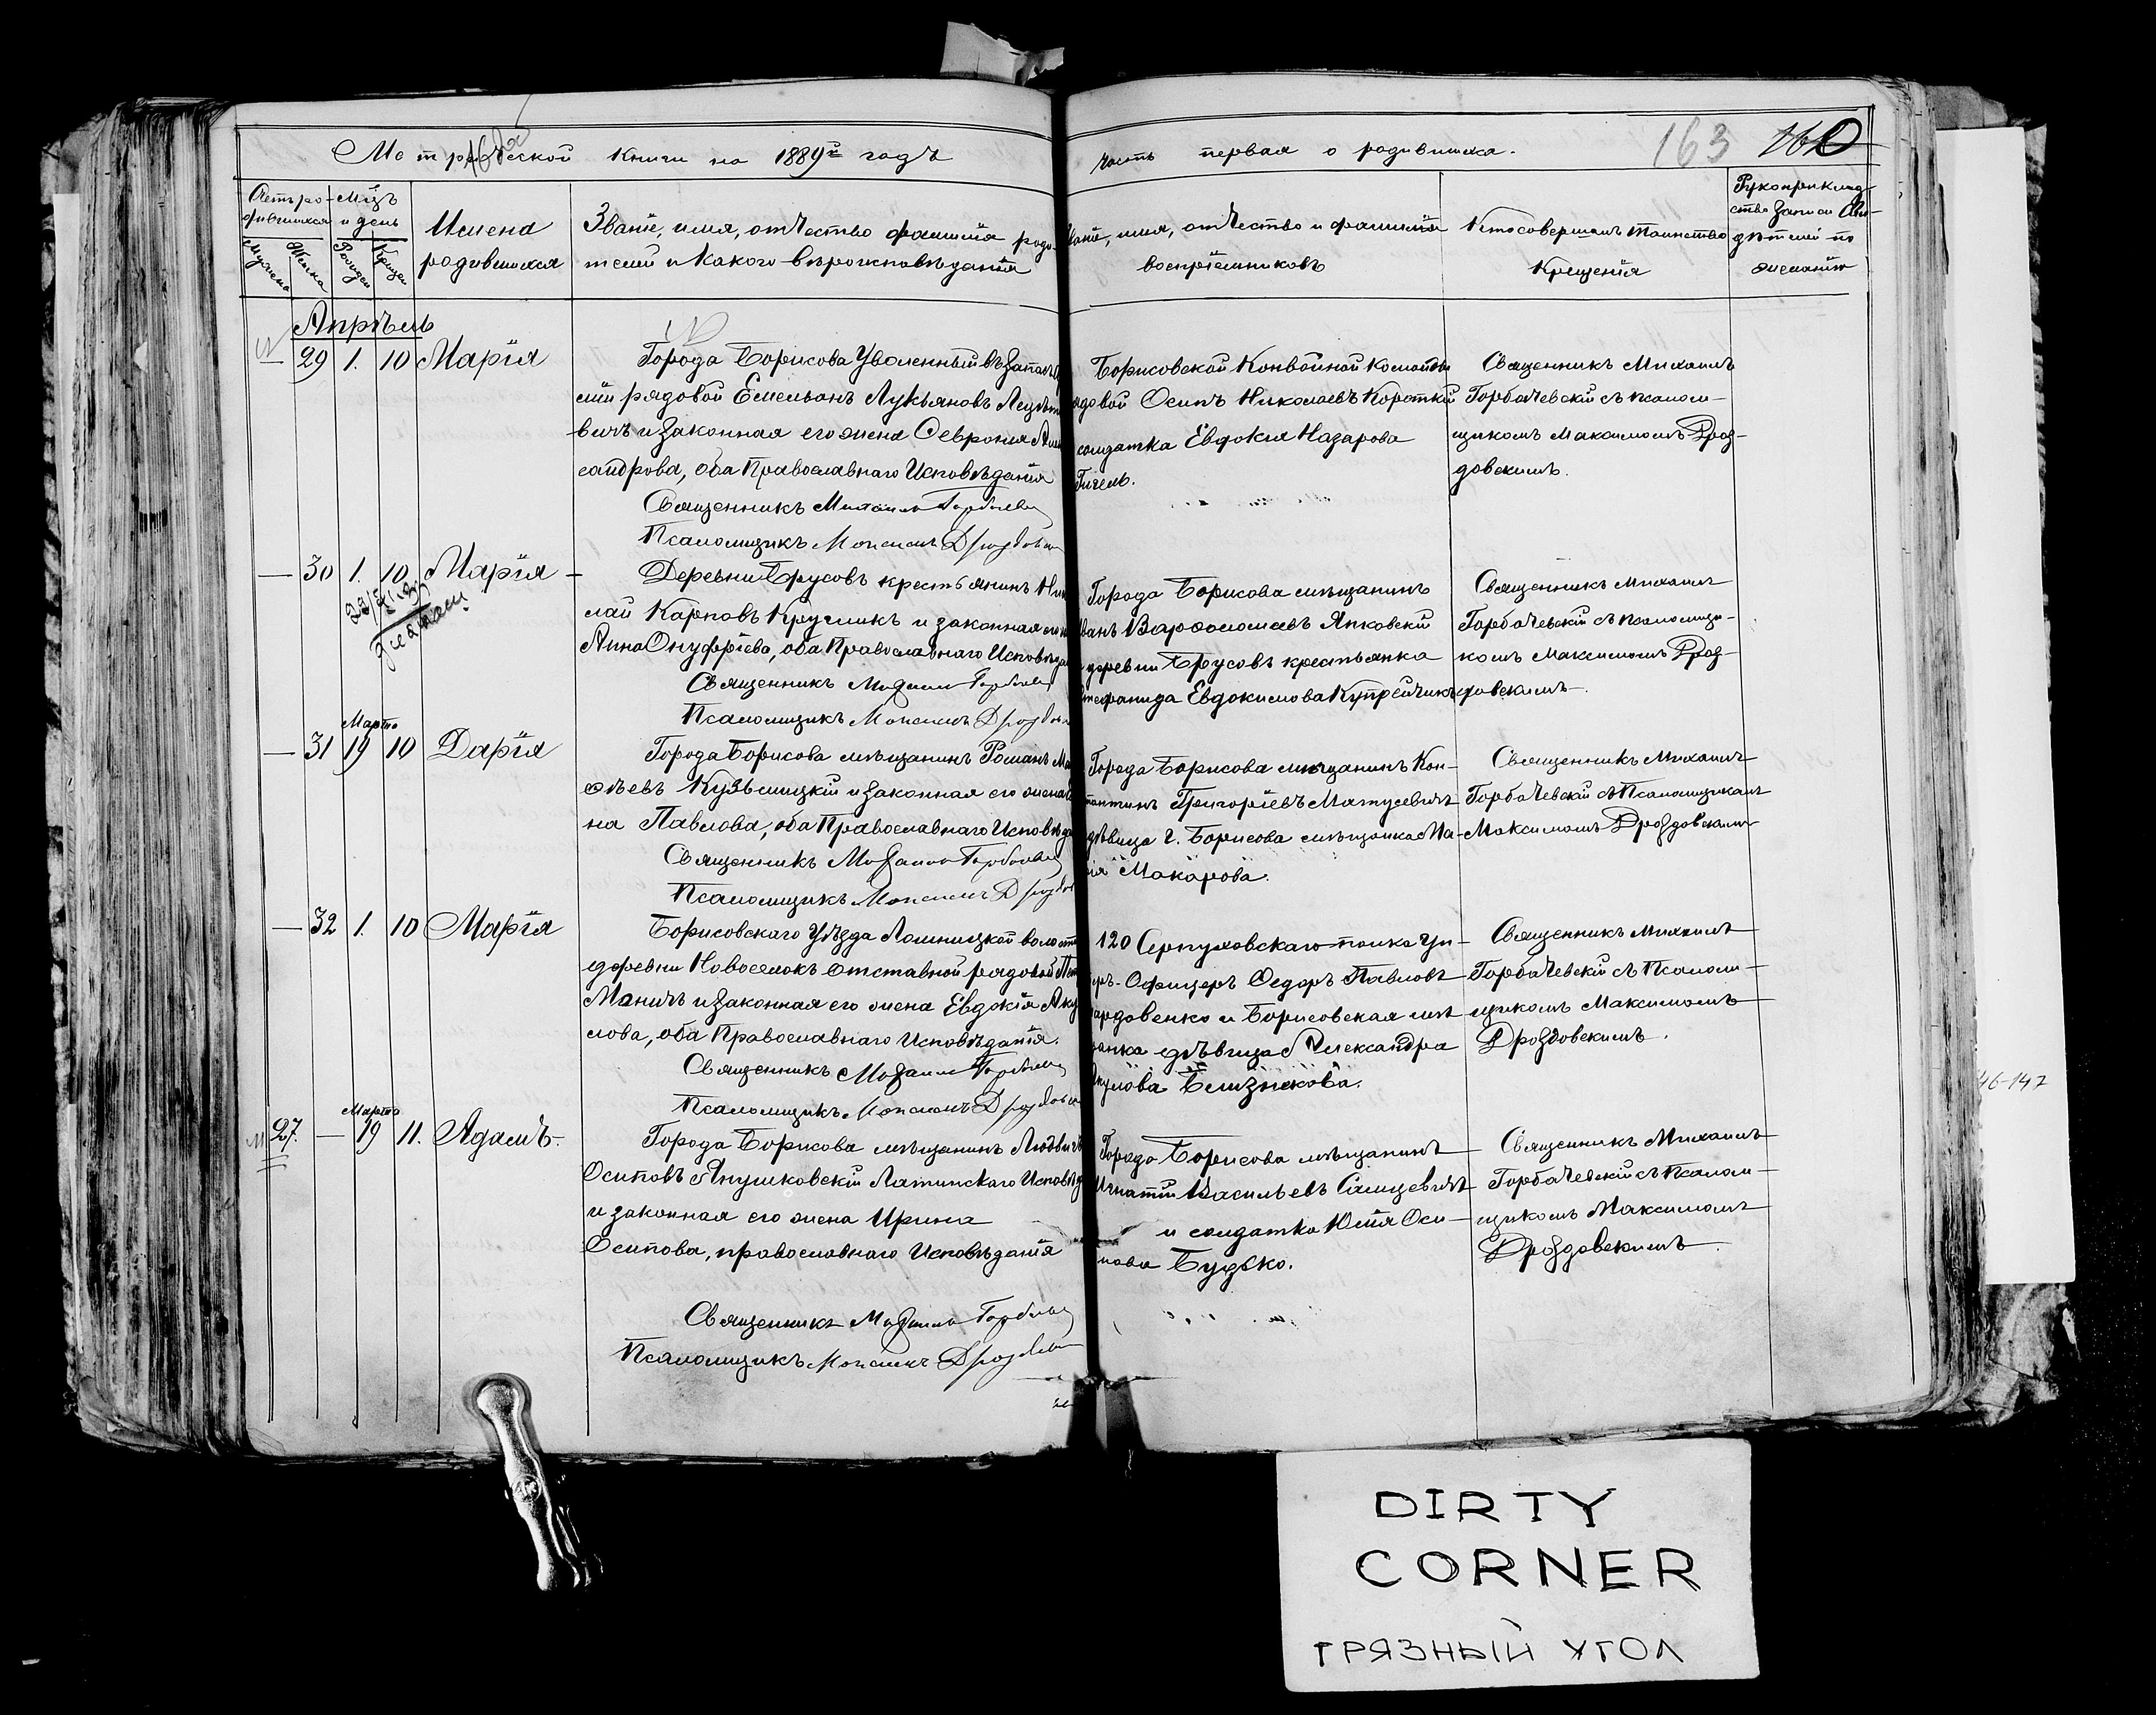 Метрической книги на 1889й годъ
часть первая о родившихся.
163
160
Счетъ ро-
дившихся
Мужеска
Женска
Мцъ
и день
Рожден
Крещен
Имена
родившихся
Званіе, имя, отчество фамилія роди-
телей и какого вѣроисповѣданія
Званіе, имя, отчество и фамилія
воспріемниковъ
Кто совершалъ таинство
крещенія
Рукоприклад-
ство записи сви-
дѣтелей по
желанію
Апрѣль
29 1. 10 Марія
Города Борисова Уволенный въ запасъ
рядовой Емельянъ Лукьяновъ
вичъ и законная его жена Февронія
сандрова, оба Православнаго Исповѣданія
Священникъ Михаилъ
Псаломщикъ Максимъ
Борисовской Конвойной Команды
рядовой Осипъ Николаевъ Короткій
солдатка Евдокія Назарова
Гигель.
Священникъ Михаилъ
Горбачевскій съ псалом-
щикомъ Максимомъ Дроз-
довскимъ.
30 1. 10 Марія
Деревни Брусовъ крестьянинъ
лай Карповъ Круглик и законная его
Анна Онуфріева, оба Православнаго
Священникъ
Псаломщикъ Максимъ
Города Борисова мѣщанинъ
Иванъ Варѳоломеевъ Янковскій
деревни Брусовъ крестьянка
Стефанида Евдокимова Купрейчикъ
Священникъ Михаилъ
Горбачевскій съ псаломщи-
комъ Максимомъ Дроз-
довскимъ.
Марта
31 19 10 Дарія
Города Борисова мѣщанинъ Романъ
ѳѣевъ Кузьмицкій и законная его жена
на Павлова, оба Православнаго
Священникъ
Псаломщикъ Максимъ
Города Борисова мѣщанинъ Кон-
стантинъ Григоріевъ Матусевичъ
дѣвица г. Борисова мѣщанка Ма-
рія Макарова.
Священникъ Михаилъ
Горбачевскій съ Псаломщикомъ
Максимомъ Дроздовскимъ
32 1. 10 Марія
Борисовскаго Уѣзда Лошницкой волости
деревни Новоселокъ отставной рядовой
Маничъ и законная его жена Евдокія
лова, оба Православнаго Исповѣданія.
Священникъ
Псаломщикъ Максимъ
120 Серпуховскаго полка Ун-
теръ-Офицеръ Ѳедоръ Павловъ
и Борисовская мѣ-
щанка дѣвица Александра
Акулова Близнюкова.
Священникъ Михаилъ
Горбачевскій съ Псалом-
щикомъ Максимомъ
Дроздовскимъ.
46-147
Марта
27. 19 11. Адамъ.
Города Борисова мѣщанинъ
Осиповъ Янушковскій Латинскаго
и законная его жена Ирина
Осипова, православнаго Исповѣданія
Священникъ
Псаломщикъ Максимъ
Города Борисова мѣщанинъ
Игнатій Васильевъ
и солдатка Юлія Оси-
пова Будько.
Священникъ Михаилъ
Горбачевскій съ Псалом-
щикомъ Максимомъ
Дроздовскимъ.
DIRTY
CORNER
ГРЯЗНЫЙ УГОЛ